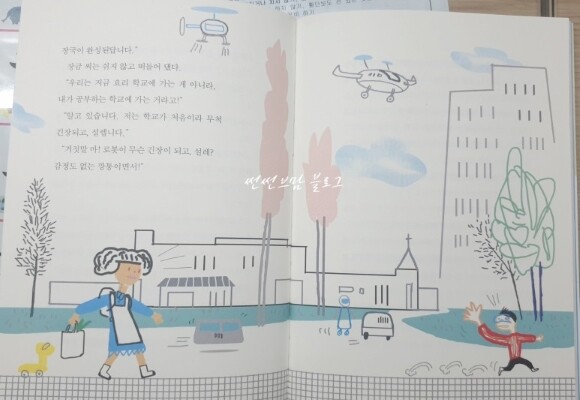 장국이 완성된답니다."
"우리는 지금 요리 학교에 가는 게 아니라,
내가 공부하는 학교에 가는 거라고!"
"알고 있습니다. 저는 학교가 처음이라 무척
긴장되고, 설렙니다."
"거짓말 마! 로봇이 무슨 긴장이 되고, 설레?
감정도 없는 깡통이면서!"
썬썬브맘 블로그